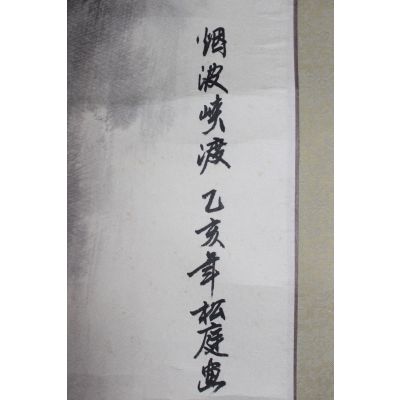 烟波峡渡 乙亥年松庭画